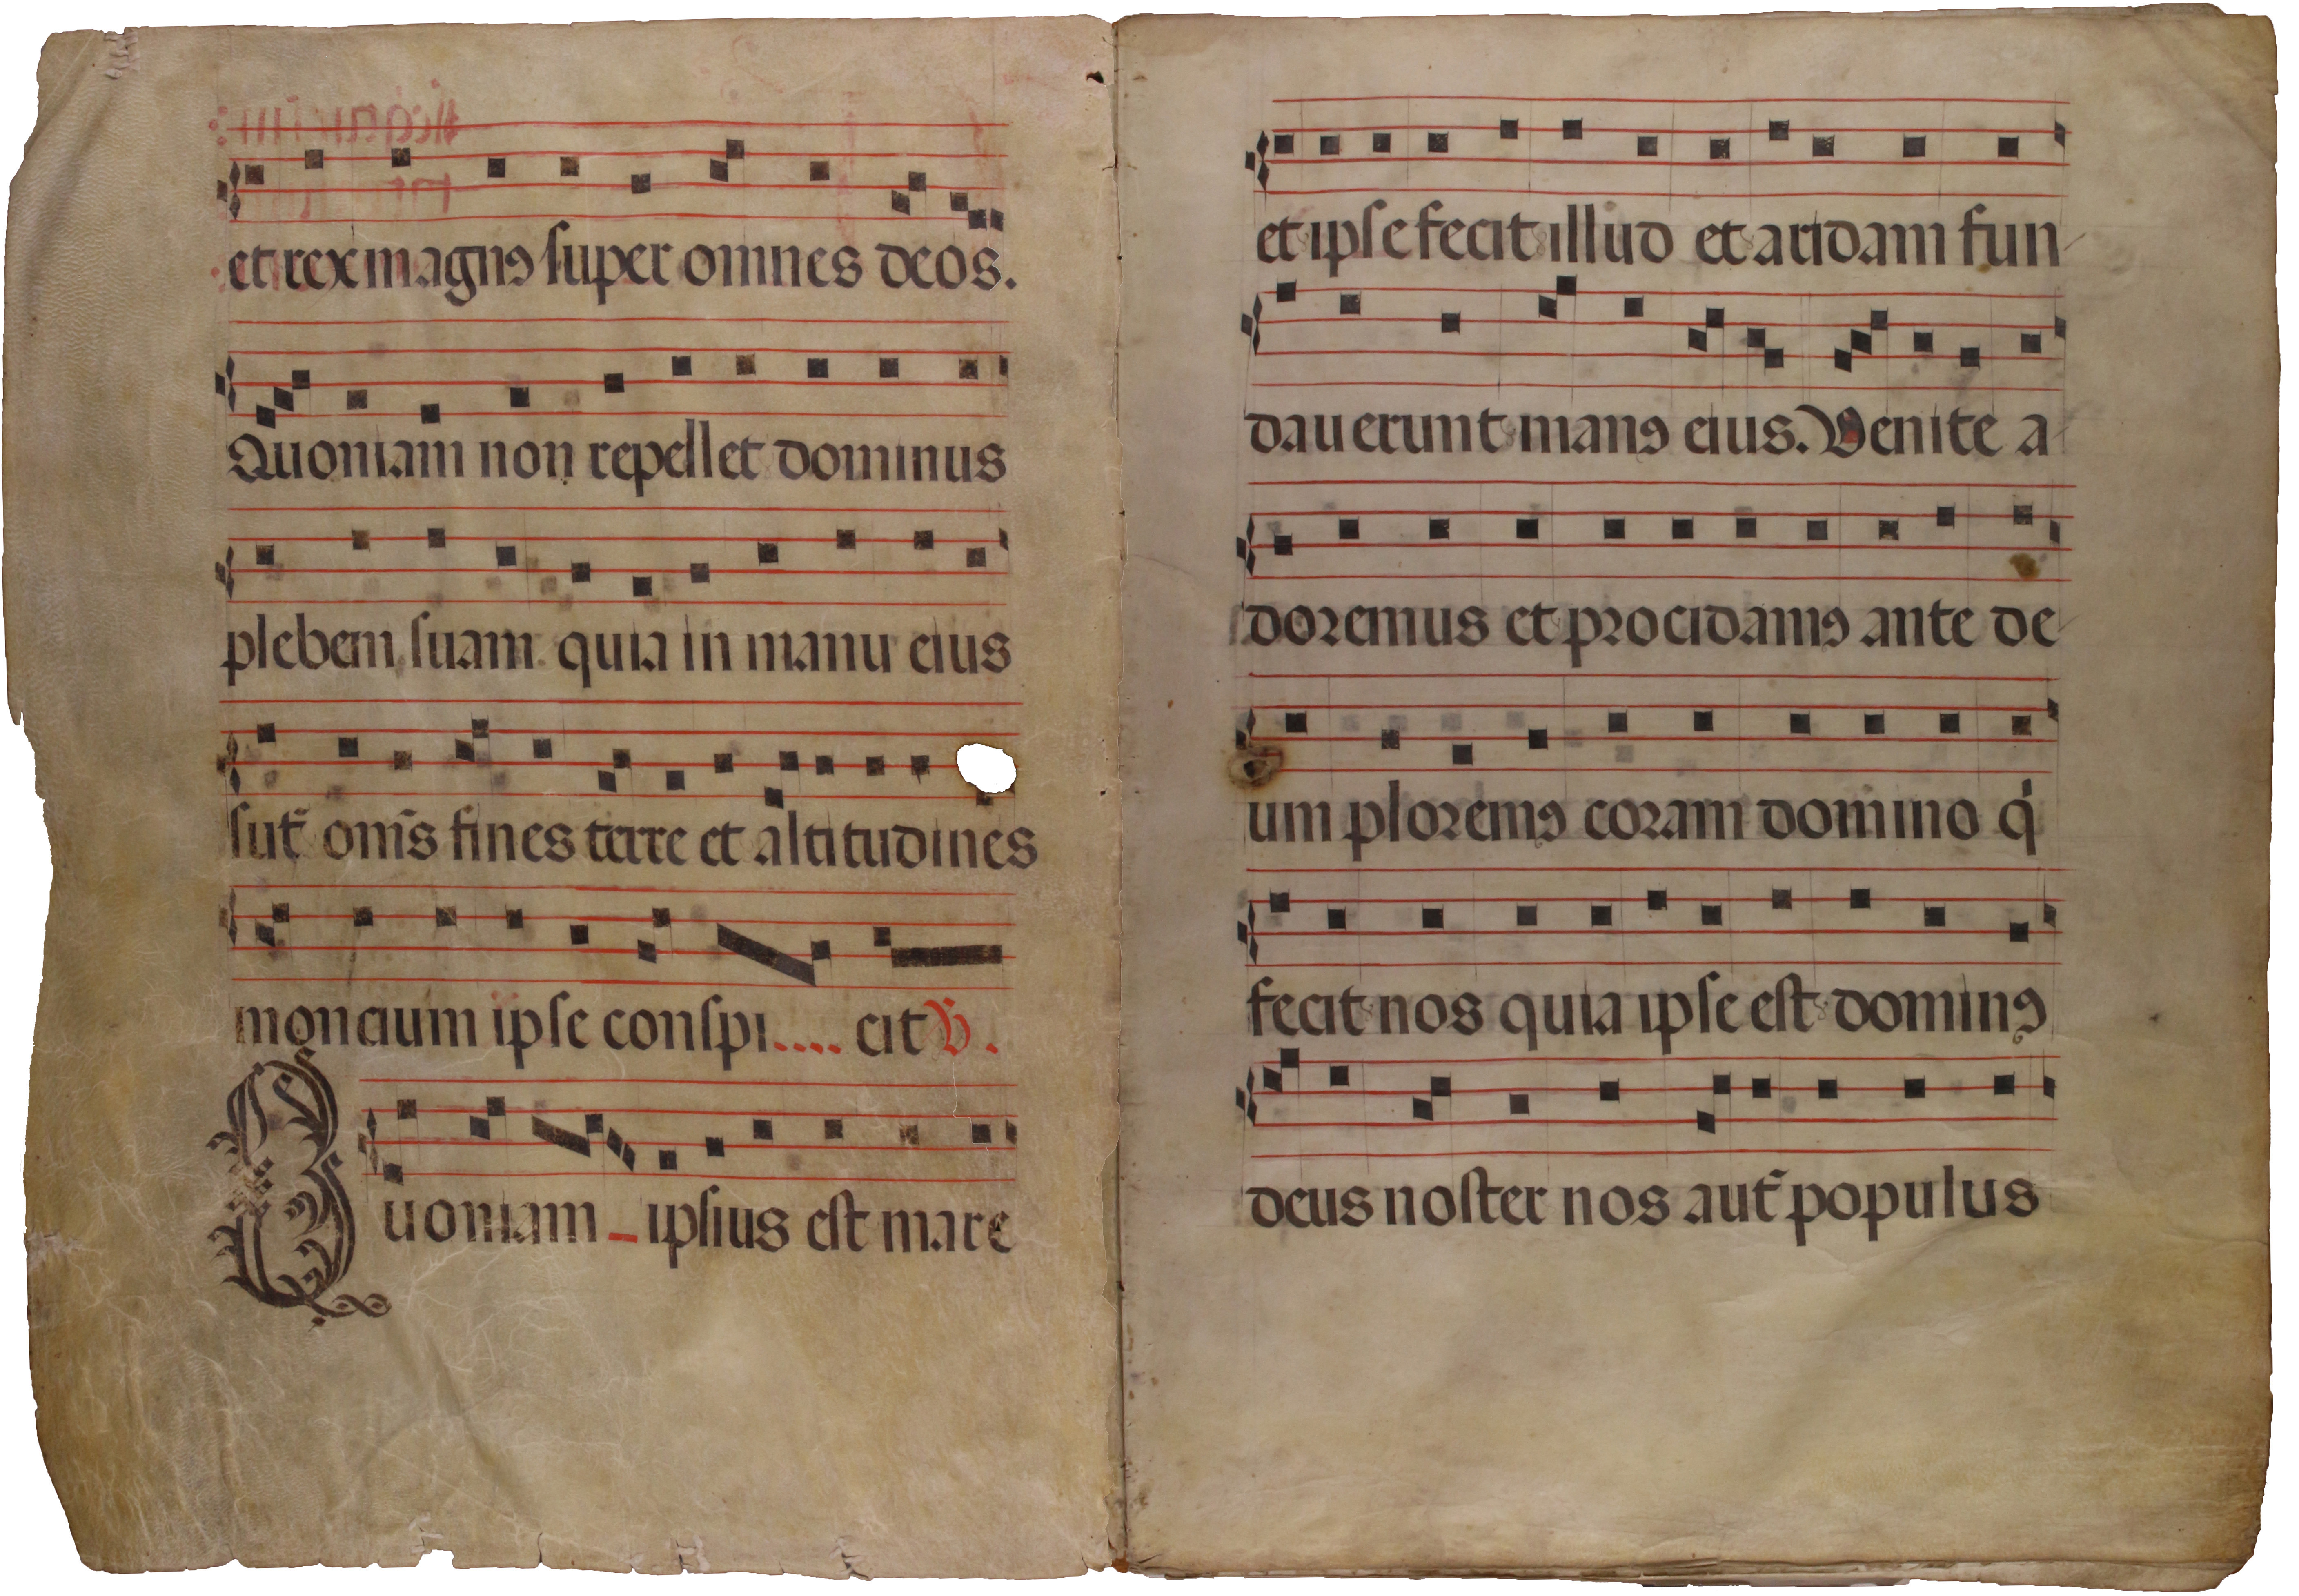 et rex magnꝰ super omnes deos.
Quoniam non repellet dominus
plebem suam quia in manu eius
sut̃ om̃s fines terre et altitudines
moncium ipse conspi.... cit V.
Quoniam ipsius est mare
et ipse fecit illud et aridam fun
dauerunt manꝰ eius. Venite a
doremus et procidamꝰ ante de
um ploremꝰ coram domino q̇
fecit nos quia ipse est dominꝰ
deus noster nos aut̃ populus